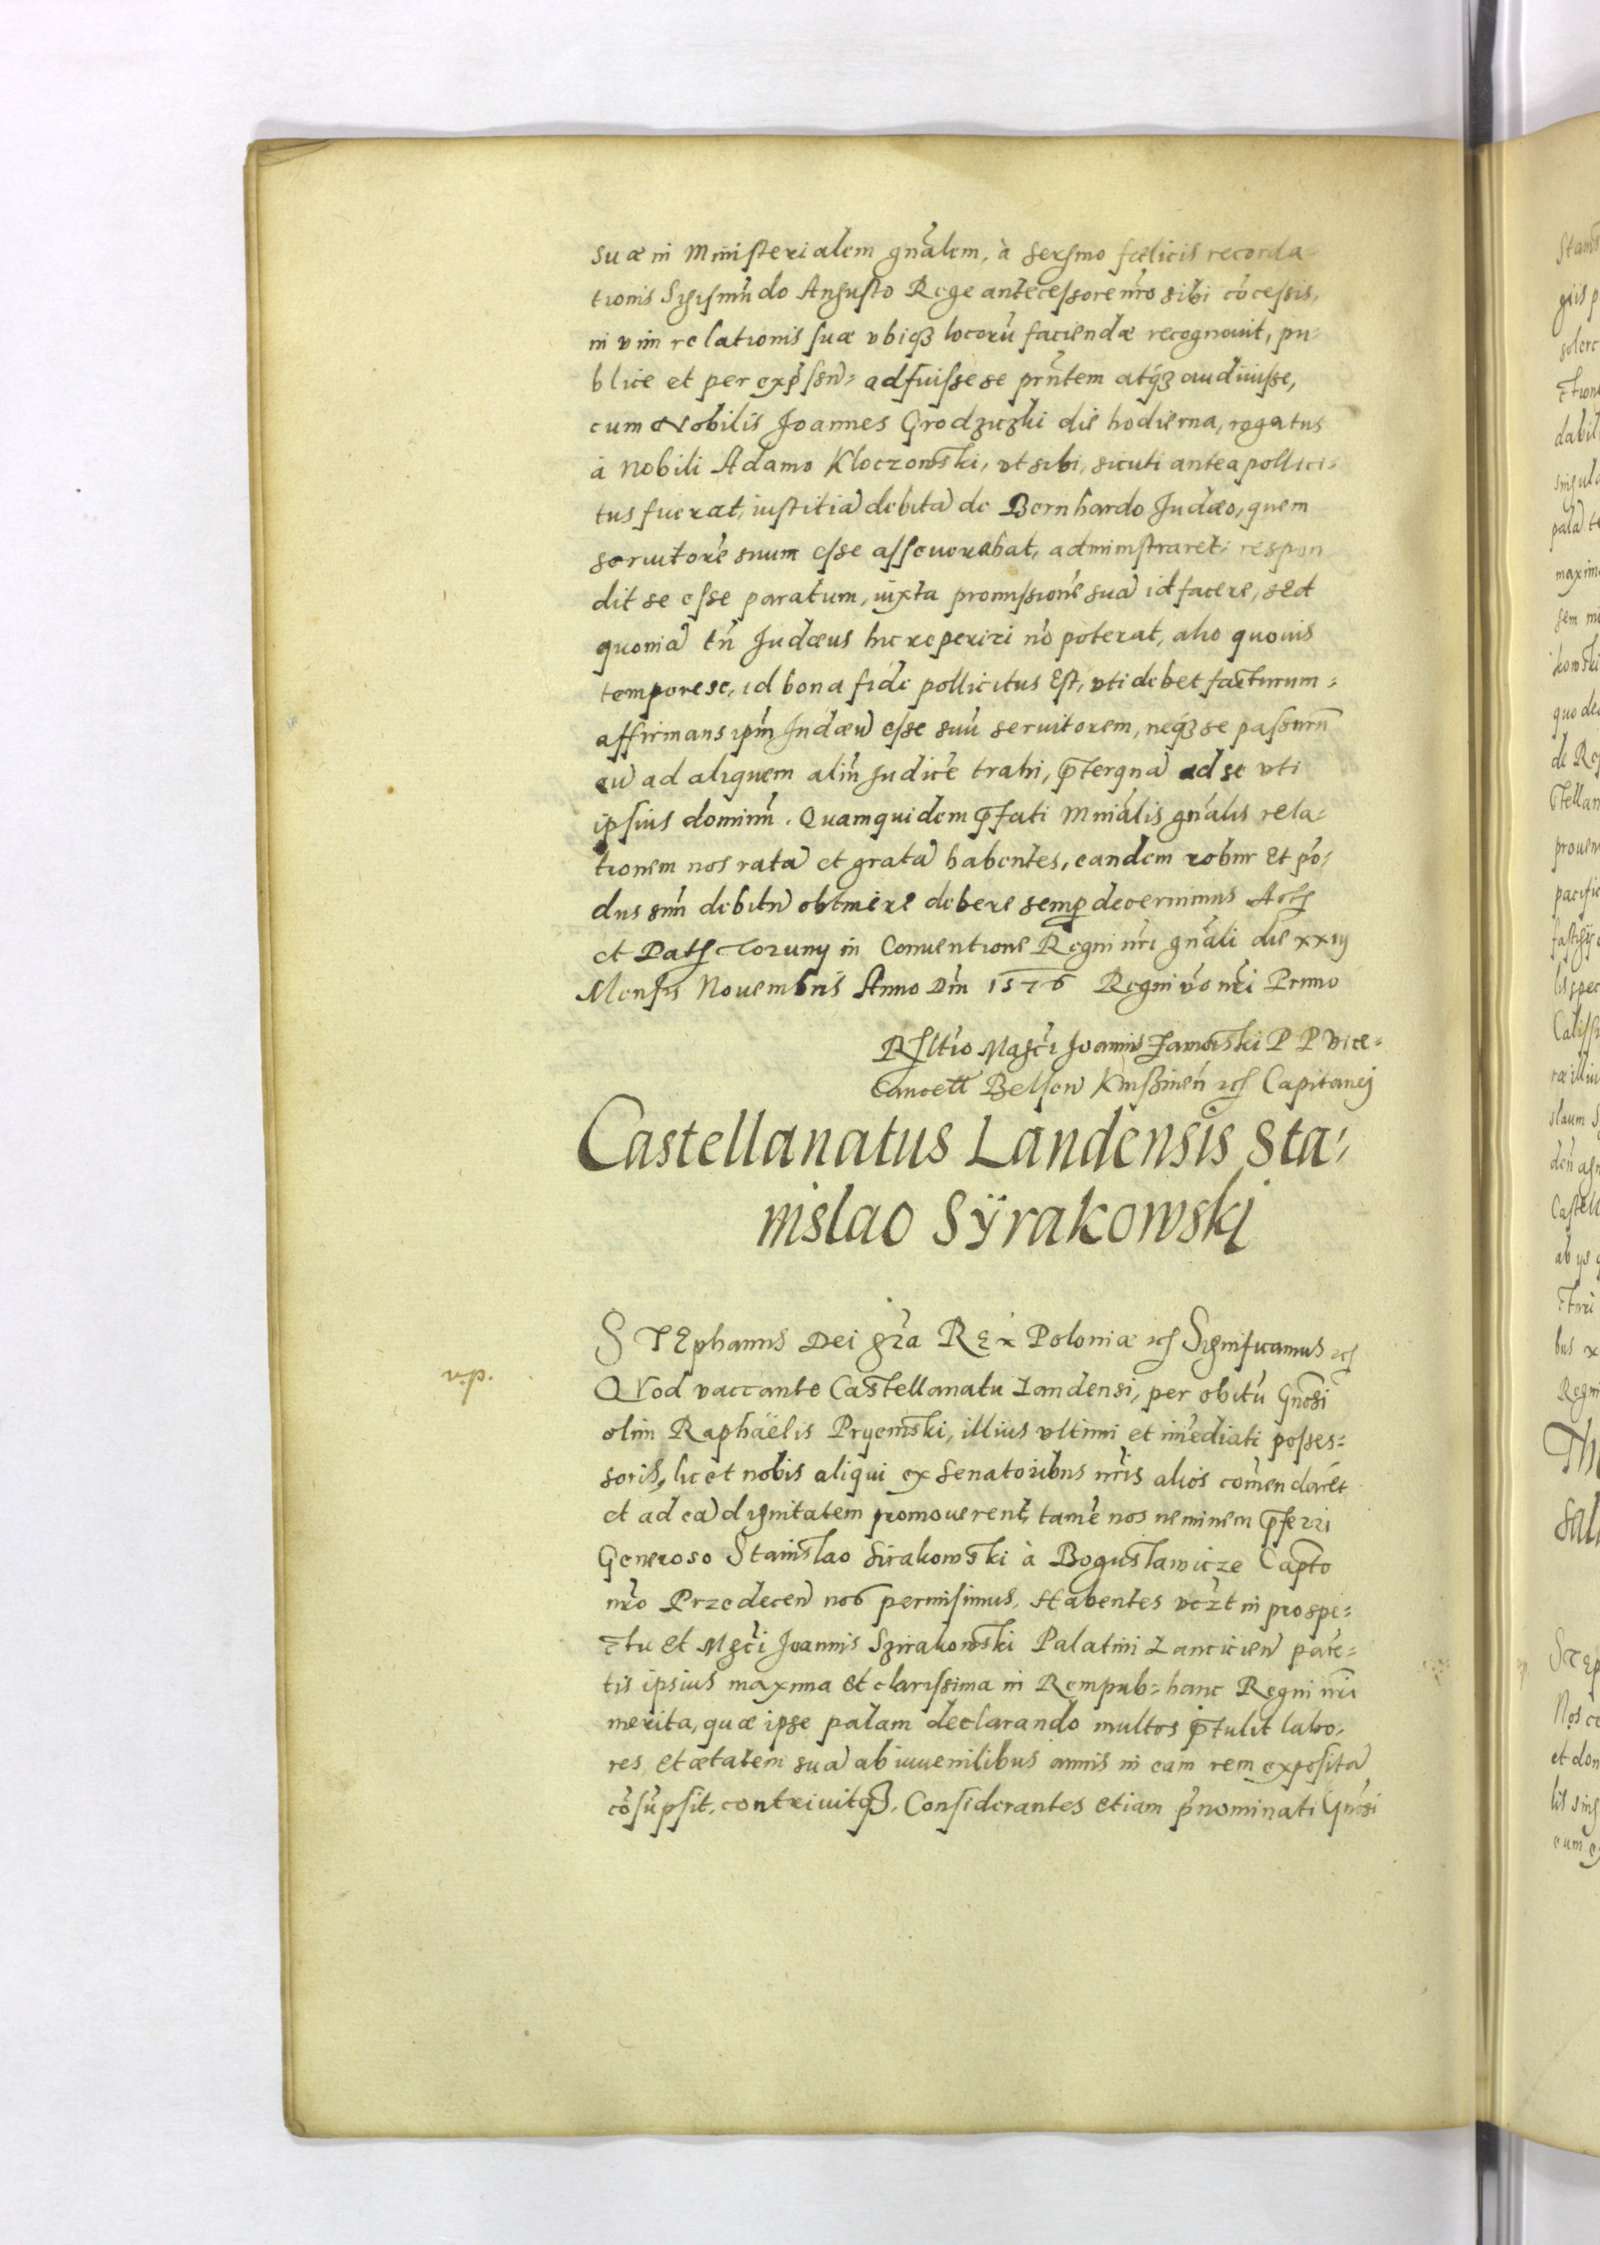 suæ in Ministerialem gnãlem, à sersmo fœlicis recorda-
tionis Sigismũdo Augusto Rege antecessore nr̃o sibi cõcessis,
in vim relationis suæ vbiqȝ locorũ faciendæ recognouit, pu-
blice et per exp̃ssũ: adfuisse se prñtem atqȝ audiuisse,
cum Nobilis Joannes Grodziczki die hodierna, rogatus
à Nobili Adamo Kloczowski, vt sibi, sicuti antea pollici-
tus fuerat, iustitiã debitã de Bernhardo Judæo, quem
seruitorẽ suum esse asseuerabat, administraret: respon
dit se esse paratum, iuxta promissionẽ suã id facere, sed
quoniã tñ Judæus hic reperiri nõ poterat, alio quouis
tempore se, id bona fide pollicitus est, vti debet facturum:
affirmans ipm̃ Judæũ esse suũ seruitorem, neqȝ se passurũ
eũ ad aliquem aliũ Judicẽ trahi, p̃terquã ad se vti
ipsius dominũ. Quamquidem p̃fati Mniãlis gnãlis rela-
tionem nos ratã et gratã habentes, eandem robur et põ-
dus suũ debitũ obtinere debere semp decernimus Act
et Dat Toruny in Conuentione Regni nr̃i gnãli die xxiij
Mensis Nouembris Anno Dñi 1576 Regni vẽo nr̃i Primo
Rsltio Mağci Joannis Zamoiski P P Vice-
Cancell Belsen Knißinen̄ etc Capitanej
Castellanatus Landensis Sta-
nislao Sÿrakowskj
v.p.
STEphanus Dei gr̃a REx Poloniæ etc Significamus etc
QVod vaccante Castellanatu Landensi, per obitũ Gnõsi
olim Raphaëlis Pryemski, illius vltimi et im̃ediati posses-
soris, licet nobis aliqui ex Senatoribus nr̃is alios com̃endarẽt
et ad eã dignitatem promouerent, tamẽ nos neminem p̃ferri
Generoso Stanislao Sirakowski à Boguslawicze Capto
nr̃o Przedecen̄ nos permisimus. Habentes vẽt in prospe-
ctu et Mgc̃i Joannis Szirakowski Palatini Lancicien̄ parẽ-
tis ipsius maxima et clarissima in Rempub: hanc Regni nr̃i
merita, quæ ipse palam declarando multos p̃tulit labo-
res, et ætatem suã ab iuuenilibus annis in eam rem expositã
cõsũpsit, contriuitqȝ. Considerantes etiam p̃nominati Gnõsi